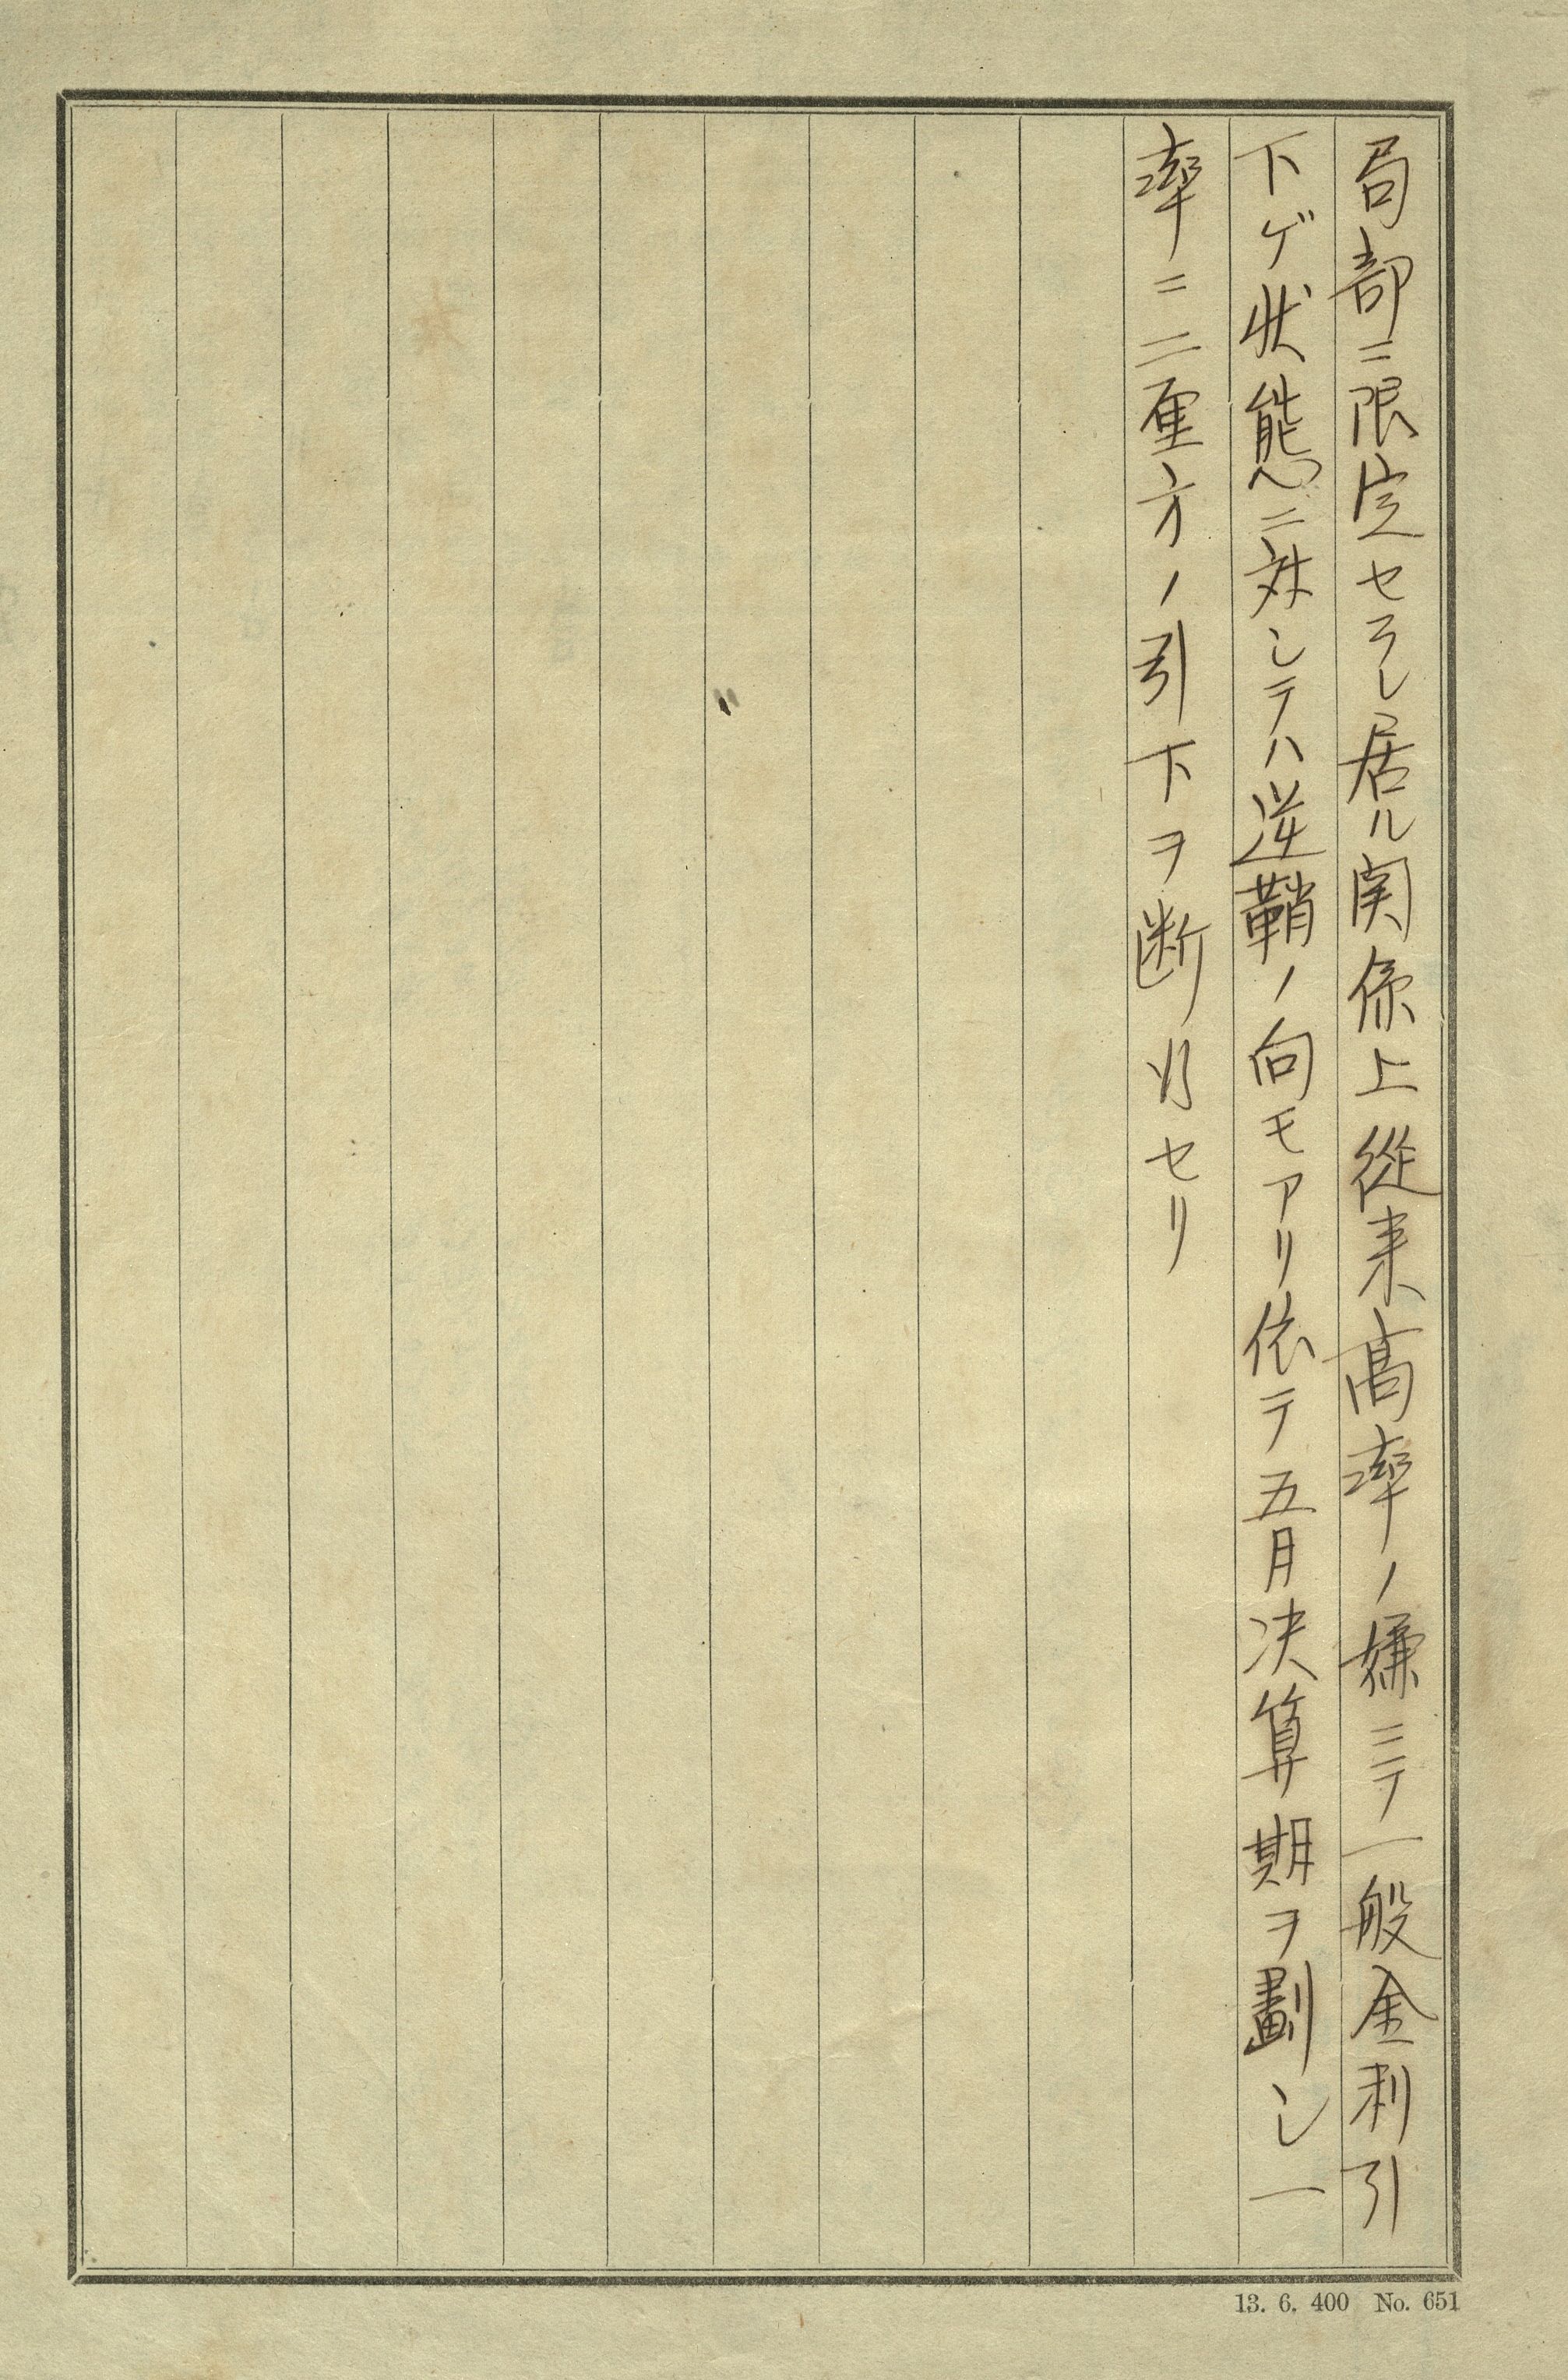 局部ニ限定セラレ居ル関係上從来高率ノ嫌ニテ一般金利引
下ゲ状態ニ対シテハ逆鞘ノ向モアリ依テ五月决算期ヲ劃シ一
率ニ二厘方ノ引下ヲ断行セリ
13. 6. 400 No. 651